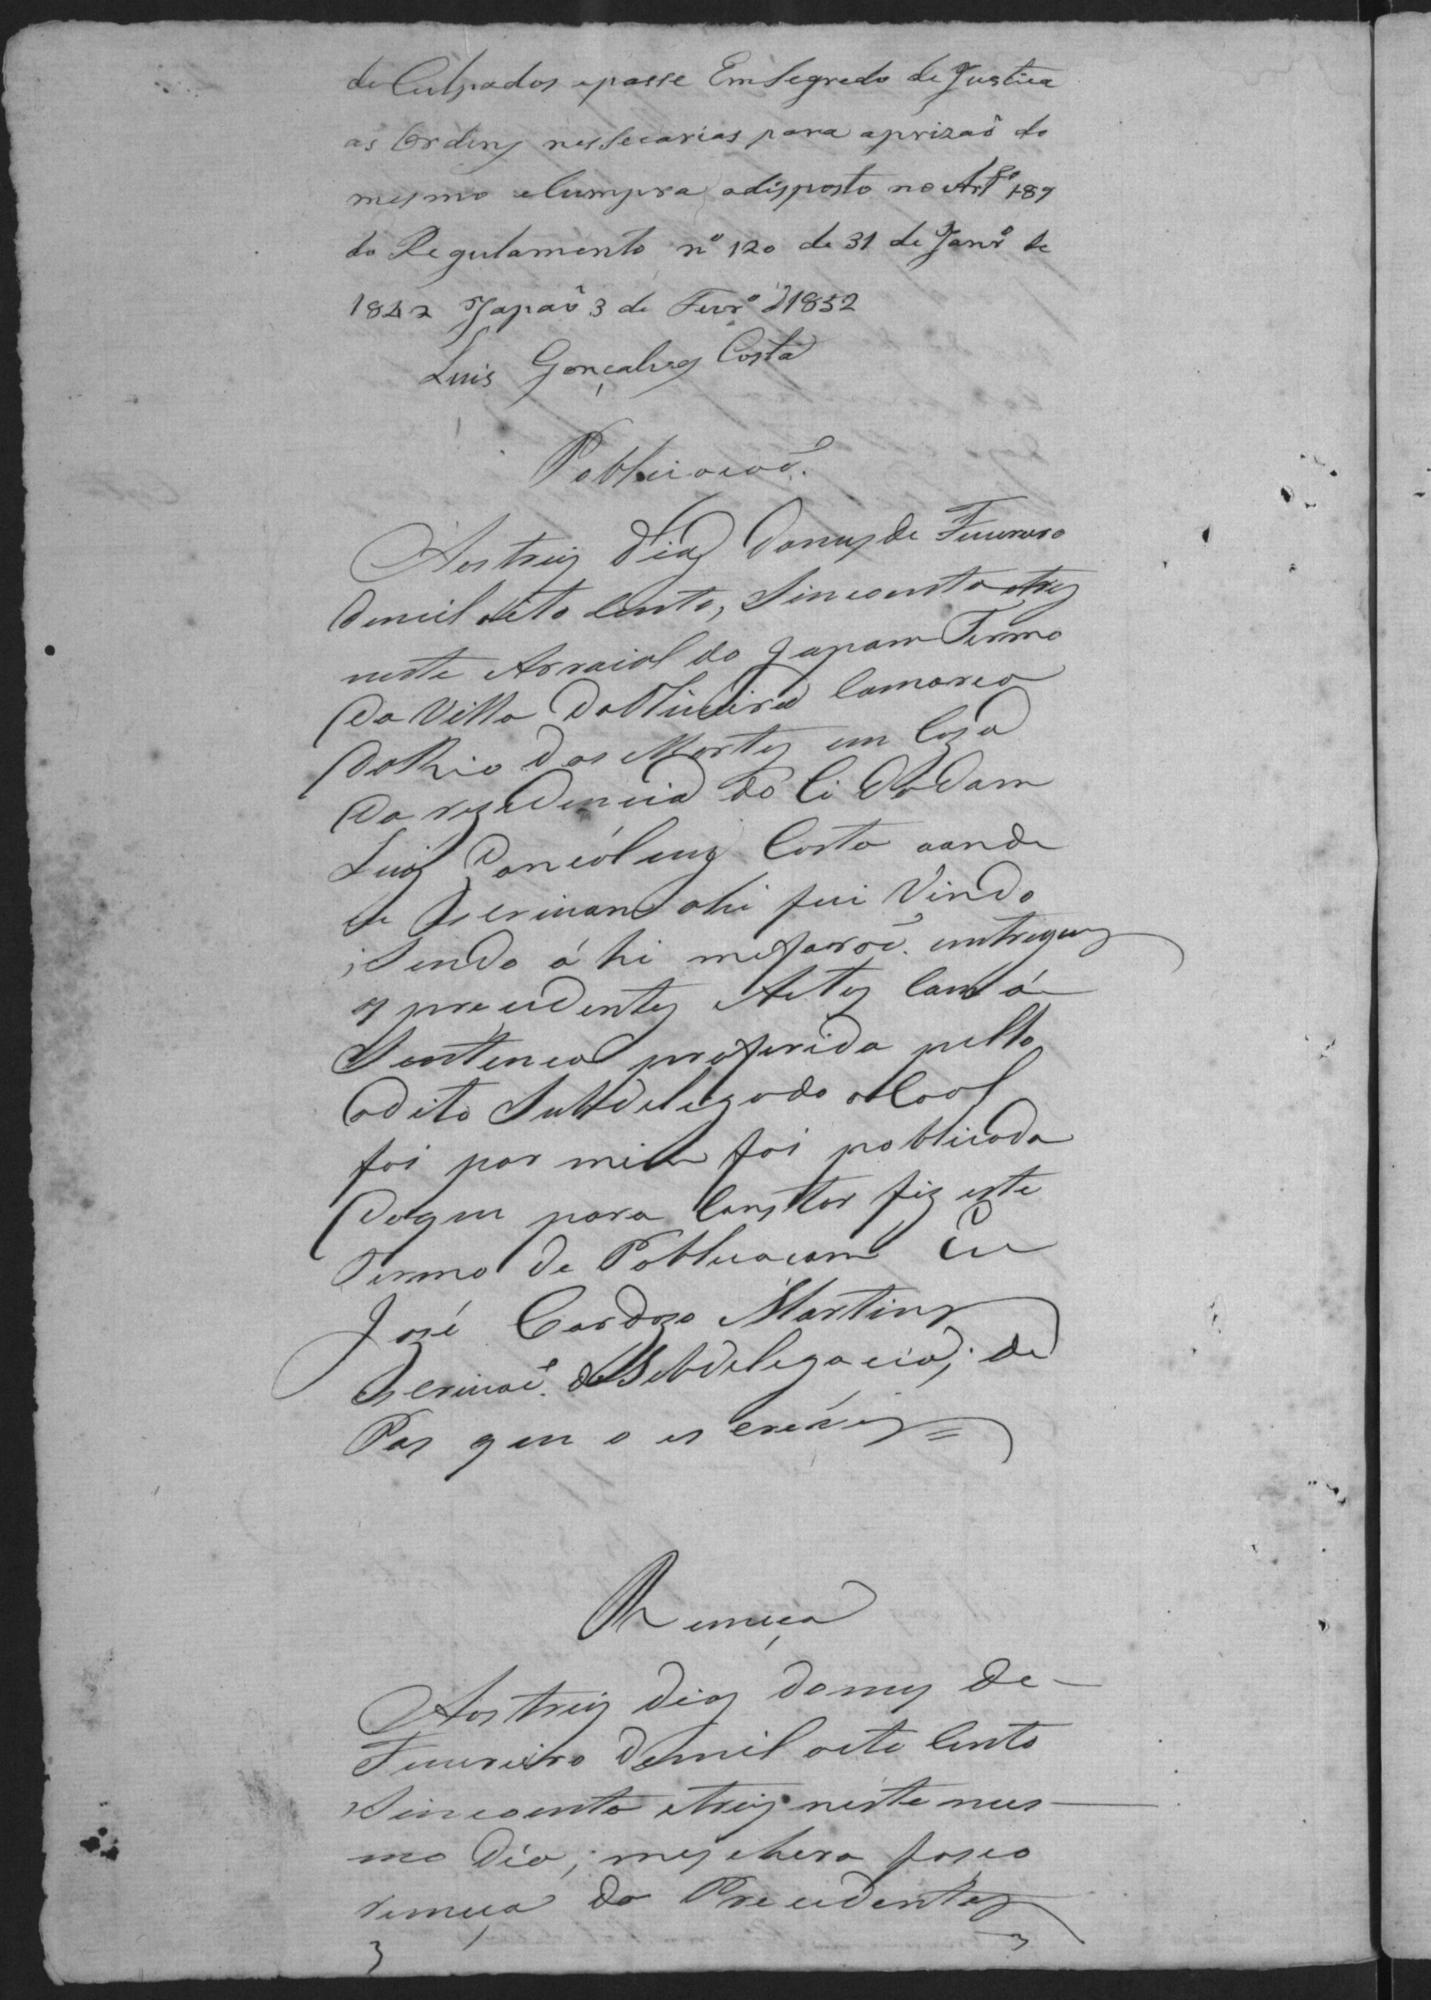 de Culpados epasse Em Segredo de Justica
as Ordens nessecarias para aprizaõ do
mesmo eCumpra odisposto no Artº 189
do Regulamento nº 120 de 31 de Janrº de
1842 Japaõ 3 de Fevrº d 1852
Luis Gonçalves Costa
Poblicacaõ.
Aos treis dias domes de Feuerero
demil oito Cento, Sincoenta etres
neste Arraial do Japam Termo
da Villa da Oliveira Comarca
do Rio das Mortes em Caza
da rezidencia do Ci dadam
Luis Goncólves Costa aonde
eu Escrivam ahi fui Vindo
Sendo áhi mefaroõ. entregues
os precidentes Actos Com á
Sentenca proferida pello
odito Subdelegado aCoal
foi por mim foi poblicada
Doque para Constar fiz este
Termo de Poblicacam Eu
José Cardozo Martins
Escrivaõ. da Sobdelegacia, de
Pas que o escrevi =
Remeça
Aos treis dias domes de
Feuereiro demil oito Cento
Sincoento etreis neste mes-
mo Dia, mes ehera faseo
remeça do Precidentes